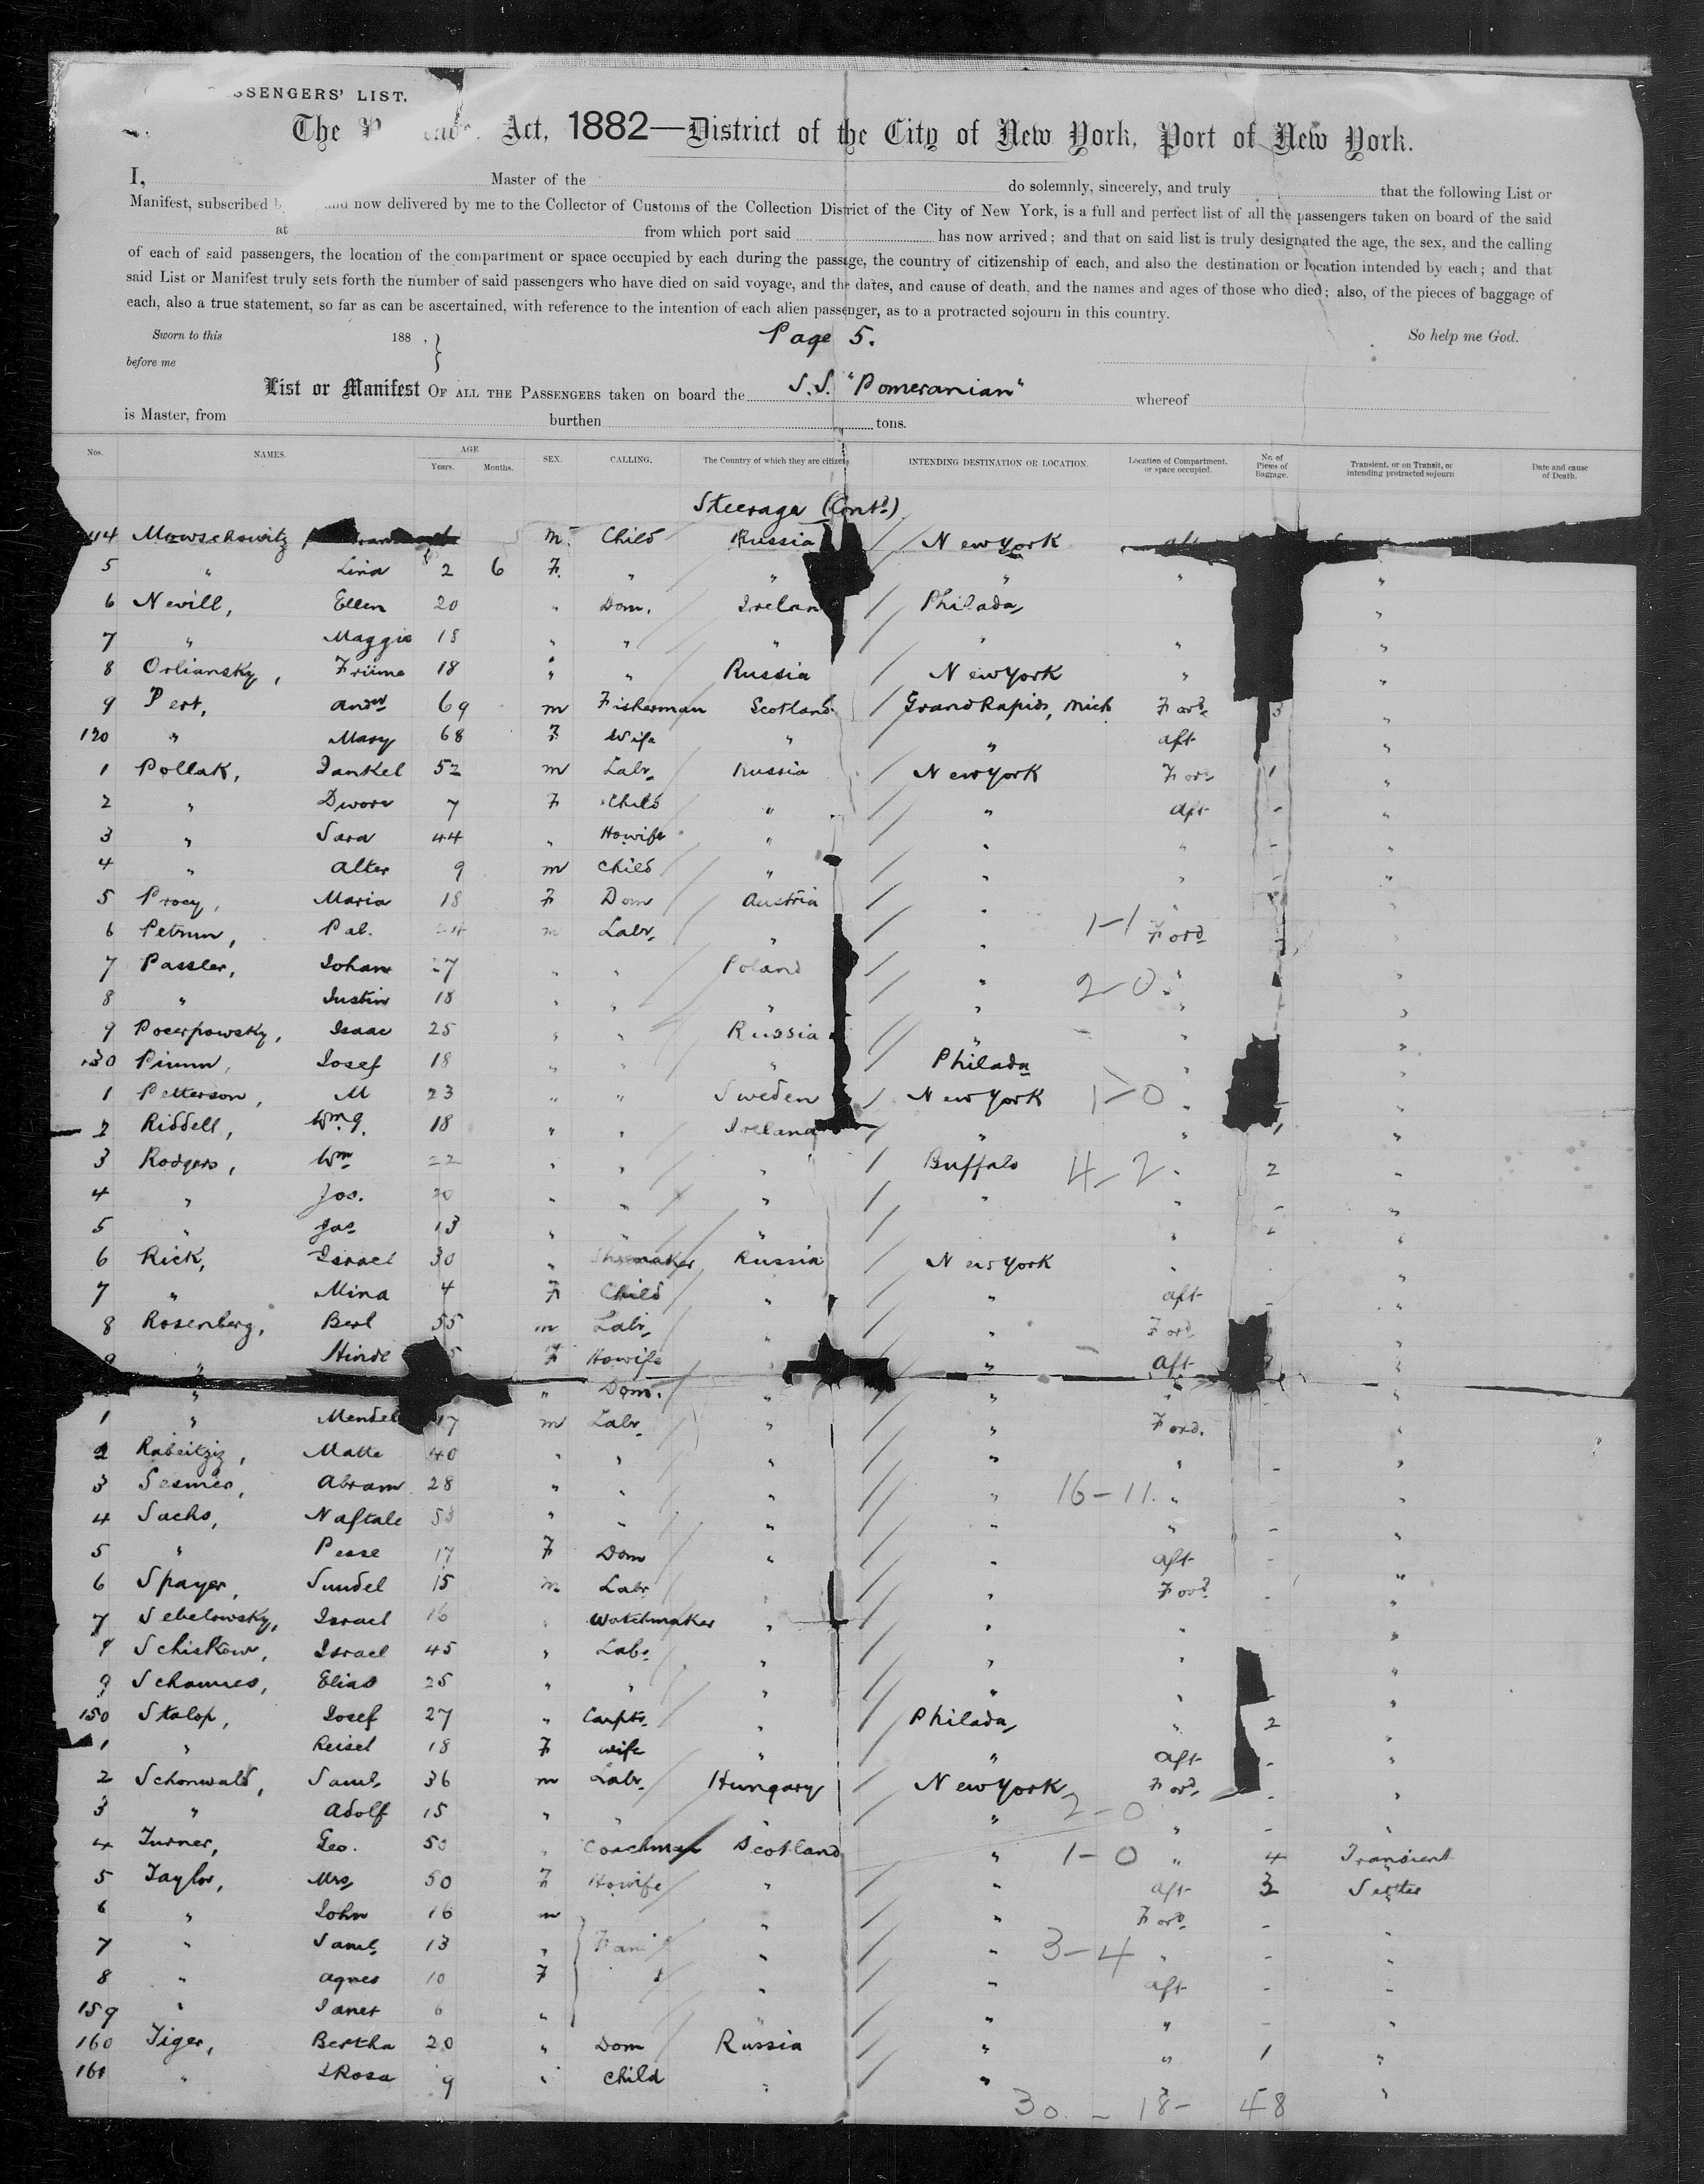 SSENGERS' LIST.
The Act, 1882—District of the City of New York, Port of New York.
I, Master of the do solemnly, sincerely, and truly that the following List or
Manifest, subscribed and now delivered by me to the Collector of Customs of the Collection District of the City of New York, is a full and perfect list of all the passengers taken on board of the said
at from which port said has now arrived; and that on said list is truly designated the age, the sex, and the calling
of each of said passengers, the location of the compartment or space occupied by each during the passage, the country of citizenship of each, and also the destination or location intended by each; and that
said List or Manifest truly sets forth the number of said passengers who have died on said voyage, and the dates, and cause of death, and the names and ages of those who died; also, of the pieces of baggage of
each, also a true statement, so far as can be ascertained, with reference to the intention of each alien passenger, as to a protracted sojourn in this country.
Sworn to this 188 . Page 5. So help me God.
before me
List or Manifest OF ALL THE PASSENGERS taken on board the S.S. "Pomeranian" whereof
is Master, from burthen tons.
Nos. NAMES. AGE Years. Months. SEX. CALLING. The Country of which they are citizens INTENDING DESTINATION OR LOCATION. Location of Compartment, or space occupied. No. of Pieces of Baggage. Transient, or on Transit, or intending protracted sojourn Date and cause of Death.
Steerage (Contd)
114 Mowschowitz m. Child Russia / New York
5 " Lina 2 6 F. " " / " "
6 Nevill, Ellen 20 " Dom. Irelan / Philada, "
7 " Maggie 18 " " " / " " "
8 Orliansky, Früme 18 " " Russia / New York " "
9 Pert, Andw 69 m Fisherman Scotland / Grand Rapids, Mich Ford 3 "
120 " Mary 68 F Wife " / " aft "
1 Pollak, Jankel 52 m Labr Russia / New York For 1 "
2 " Dwore 7 F Child " / " aft - "
3 " Sara 44 " Howife " / " " - "
4 " Alter 9 m Child " / " " - "
5 Maria 18 F Dom Austria / " "
6 Pal. m Labr " / " 1-1 Ford
7 Passler, Johan 27 " " Poland / " 2-0 " "
8 " Justin 18 " " " / " " "
9 Isaac 25 " " Russia / " " "
130 Josef 18 " " " / Philada " "
1 Petterson, M 23 " " Sweden / New York 1-0 " "
2 Riddell, Wm G. 18 " " Ireland / " " 1 "
3 Rodgers, Wm 22 " " " / Buffalo 4-2 " 2 "
4 " Jos. 20 " " " / " " - "
5 " Jas 13 " " " / " - "
6 Rick, Israel 30 " Shoemaker Russia / New York " "
7 " Mina 4 F Child " / " aft - "
8 Rosenberg, Berl 55 m Labr " / " Ford "
9 " Hinde 5 F Howife " / " aft "
" " Dom. " / " " "
1 " Mendel 17 m Labr " / " Ford. "
2 Matte 40 " " " / " " - "
3 Abram 28 " " " / " 16-11. " "
4 Sachs, Naftale 53 " " " / " " - "
5 " Pesse 17 F Dom " / " aft - "
6 Spayer, Sundel 15 m Labr " / " Ford - "
7 Israel 16 " Watchmaker " / " " "
8 Schiskow, Israel 45 " Labr " / " " "
9 Elias 25 " " " / " " "
150 Stalop, Josef 27 " Carptr " / Philada, " 2 "
1 " Reisel 18 F wife " / " aft - "
2 Schonwald, Saml 36 m Labr Hungary / New York Ford - "
3 " Adolf 15 " " " / " 2-0 " - "
4 Turner, Geo. 50 " Coachman Scotland / " 1-0 " 4 Transient
5 Taylor, Mrs 50 F Howife " / " aft 3 Setter
6 " John 16 m " / " Ford - "
7 " Saml 13 " Fami " / " 3-4 " - "
8 " Agnes 10 F " / " aft - "
159 " Janet 6 " " / " " - "
160 Tiger, Bertha 20 " Dom Russia / " " 1 "
161 " Rosa 9 " Child " / " " "
30 - 18 - 48